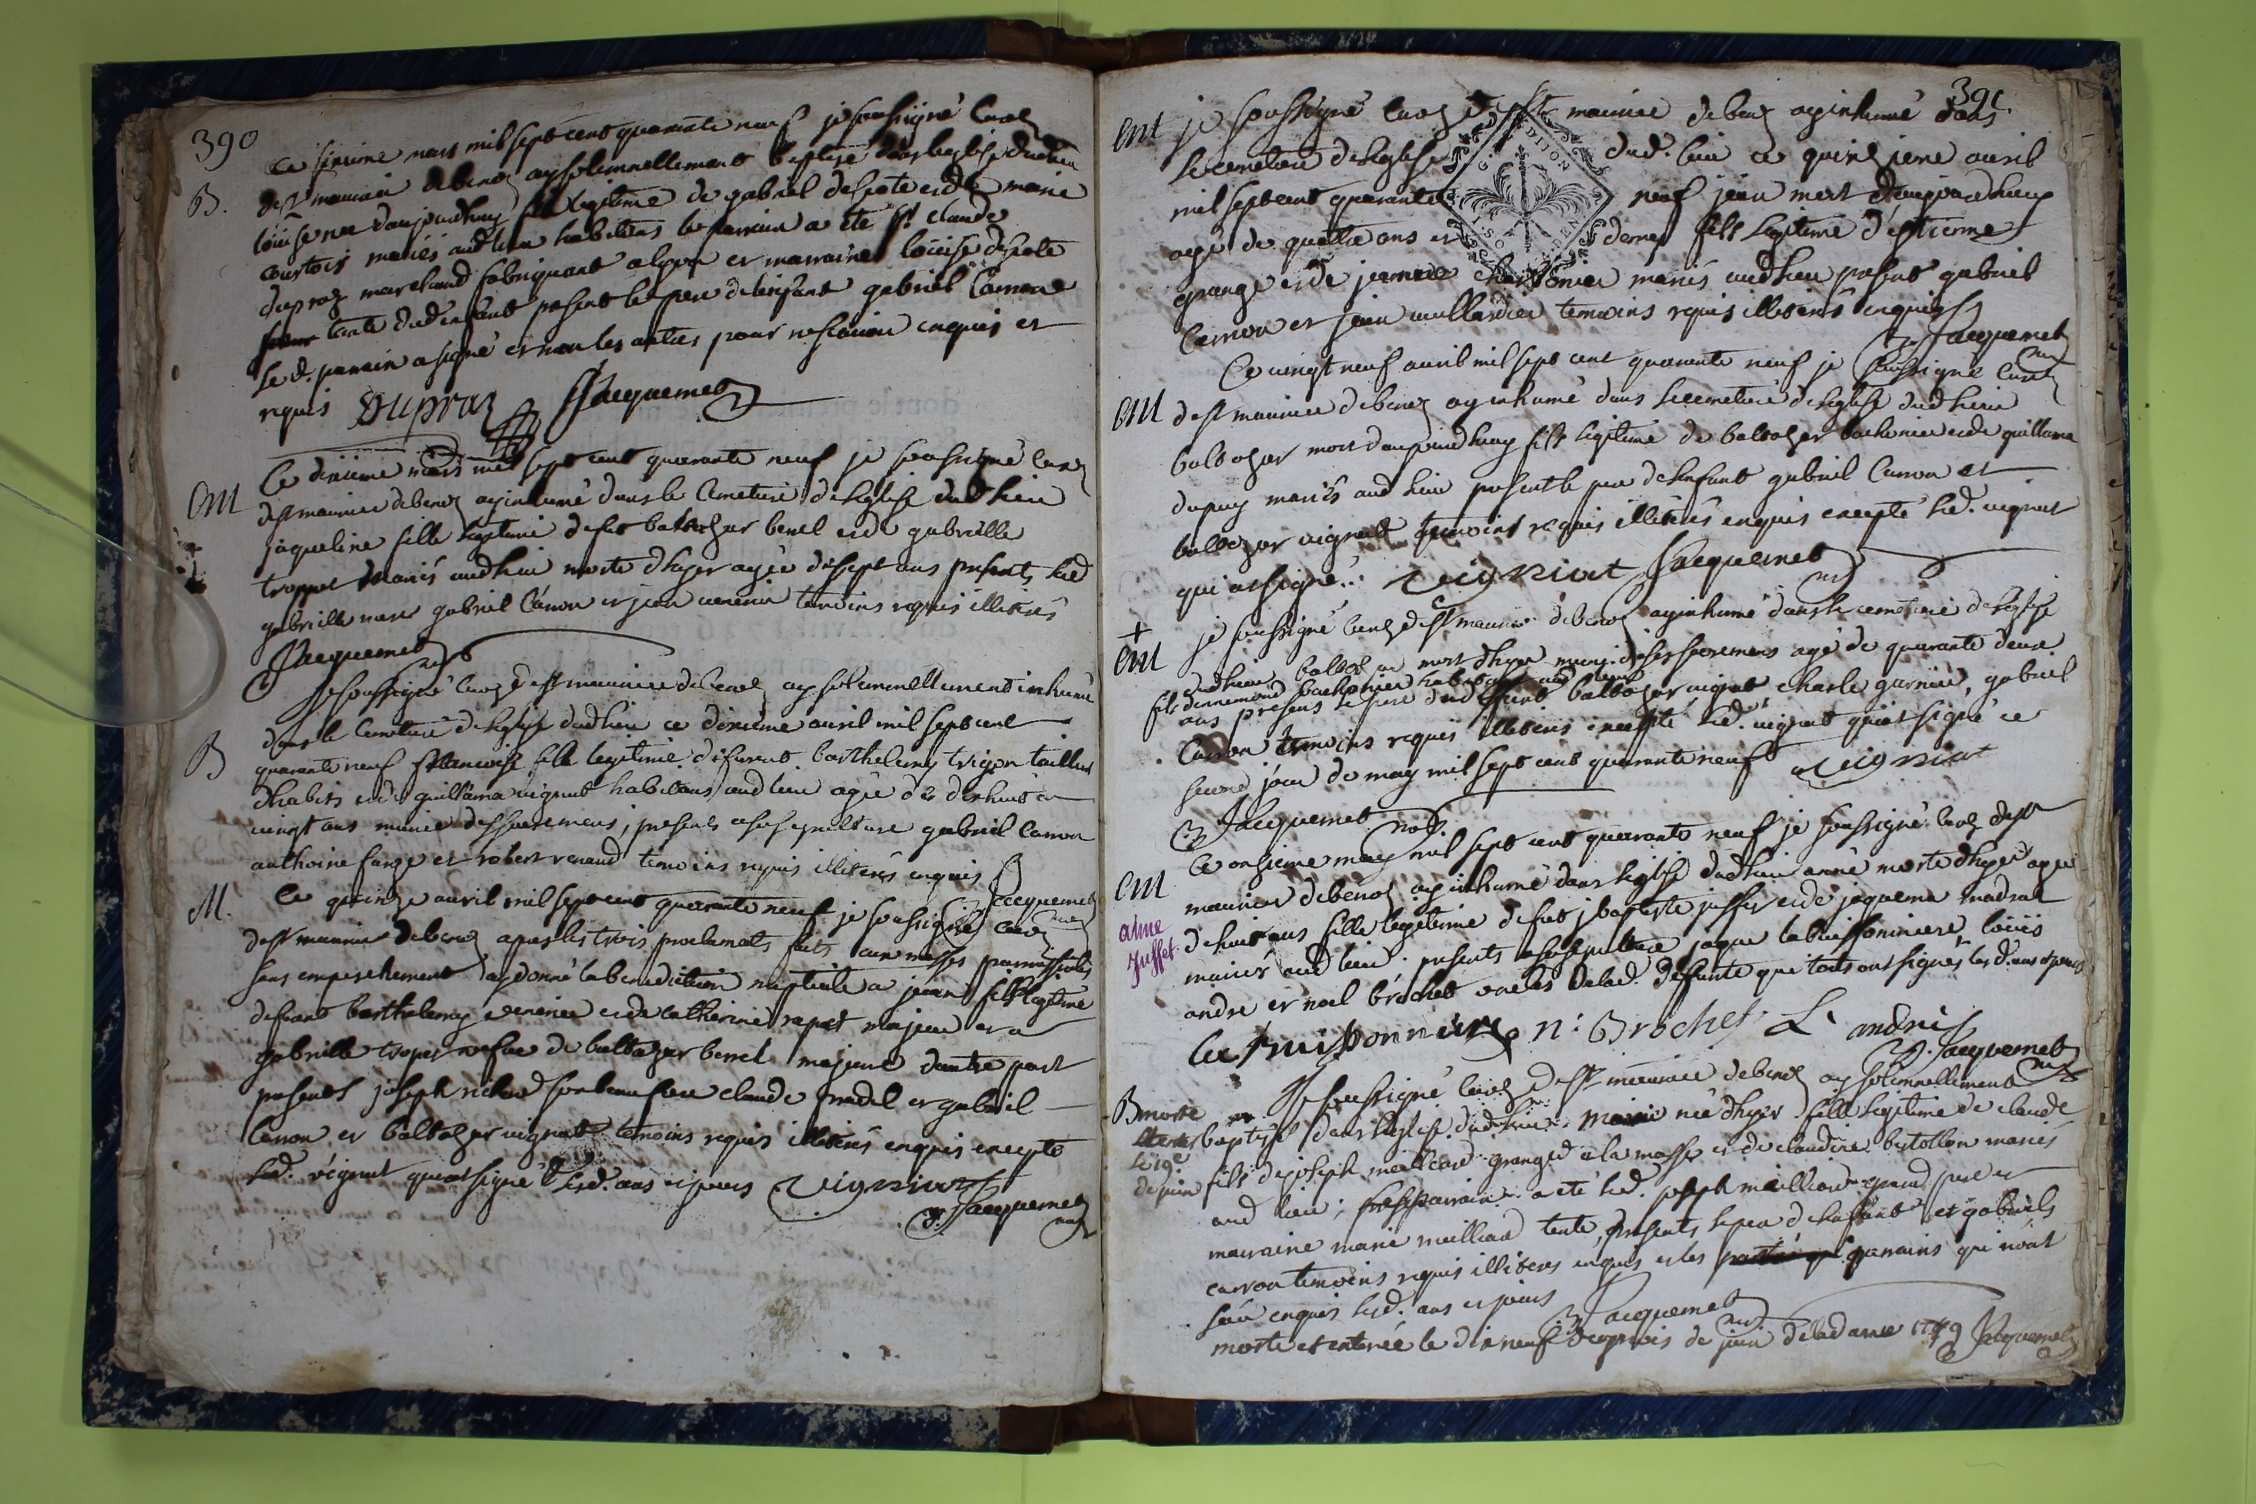 390
B.
Ce sixieme mars mil sept cent quarante neuf je soussigné Curé
de St maurice debenoz ay solemnellement baptizé dans leglise dud lieu
loüise née daujourdhuy fille legitime de gabriel despote et de marie
courtois mariés aud lieu habitans le parrain a été Sr claude
dupraz marchand fabriquant a lyon et marraine loüise despote
tante dud enfant présent le pere de lenfant gabriel Carron
led. parrain a signé et non les autres pour ne scavoir enquis et
requis Dupraz Jacquemet
Em
Ce dixieme mars mil sept cent quarante neuf je soussigné Curé
de St maurice debenoz ay inhumé dans le Cemetiere de leglise dud lieu
jaqueline fille legitime de fut baltazar benel et de gabrielle
troppet mariés aud lieu morte dhyer agée de sept ans presents lad
gabrielle mere gabriel Carron et jean venenin temoins requis illiterés
Jacquemet
B
Je soussigné Curé de St maurice debenoz ay solemnellement inhumé
dans le Cemetiere de leglise dud lieu ce dixieme avril mil sept cent
quarante neuf francoise fille legitime de furent barthelemy trigon tailleur
dhabits et de guillauma vignat habitans aud lieu agée de dixhuit a
vingt ans munie des sacremens, presents a sa sepulture gabriel Carron
anthoine farge et robert renaud temoins requis illiterés enquis
Jacquemet curé
M.
Ce quinze avril mil sept cent quarante neuf je soussigné Curé
de St maurice debenoz apres les trois proclamats faits aux messes paroissiales
sans empeschement ay donné la benediction nuptiale a jean fils legitime
defunt barthelemy venenin et de catherine rapet majeur et a
gabrielle troppet vefue de baltazar benel majeure dautre part
presents joseph richard son beaufrere claude pradel et gabriel
Carron et baltazar vignat temoins requis illiterés enquis excepté
led. vignat qui a signé led. ans et jours Vigniat
Jacquemet curé
391
Ent
je soussigné Curé de St maurice debenoz ay inhumé dans
le cemetiere de leglise dud. lieu ce quinzieme avril
mil sept cent quarante neuf jean mort daujourdhuy
agé de quattre ans et demy fils legitime destienne
grange et de jeanne charbonier mariés aud lieu present gabriel
Carron et jean mullardier temoins requis illiterés enquis
Jacquemet
G. DIJON
Em
Ce vingt neuf avril mil sept cent quarante neuf je soussigné Curé
de St maurice debenoz ay inhumé dans le cemetiere de leglise dud lieu
baltazar mort daujourdhuy fils legitime de baltazar bachonier et de guillauma
dupuy mariés aud lieu present le pere de lenfant gabriel Carron et
baltazar vignat temoins requis illiterés enquis excepté led. vignat
qui a signé. Vigniat Jacquemet
+
Em
je soussigné Curé de St maurice debenoz ay inhumé dans le cemetiere de leglise
dud lieu baltazar mort dhyer muni de ses sacremens agé de quarante deux
fils dennemond bachonier habitans aud lieu
ans presens le pere dud defunt baltazar vignat charle garnier, gabriel
Carron temoins requis illiterés excepté led. vignat qui a signé ce
jour de may mil sept cent quarante neuf Vigniat
Jacquemet
Em
anne
Juffet
Ce onzieme may mil sept cent quarante neuf je soussigné Curé de St
maurice debenoz ay inhumé dans leglise dud lieu anne morte dhyer agée
de huit ans fille legitime de fut j baptiste juffet et de jaquema madral
mariés aud lieu. presents a sa sepulture jaque labuissonniere loüis
andré et noel brochet oncles de lad. defunte que tous ont signés les d. ans et jours
La buissonniere n. Brochet L. andrié
Jacquemet
B morte
le 19e
de juin
Je soussigné Curé de St maurice debenoz ay solemnellement
baptizé dans leglise dud lieu marie née dhyer fille legitime de claude
fils de joseph meilliard granger a la masse et de claudine bertollon mariés
aud lieu; parrain a été led. joseph meilliard grand pere et
marraine marie meilliard tante, presents le pere de lenfant et gabriel
carron temoins requis illiterés enquis et les parrains qui nont
sceu enquis led. ans et jours
Jacquemet
morte et enterrée le dixneuf du mois de juin de lad anné 1749 Jacquemet